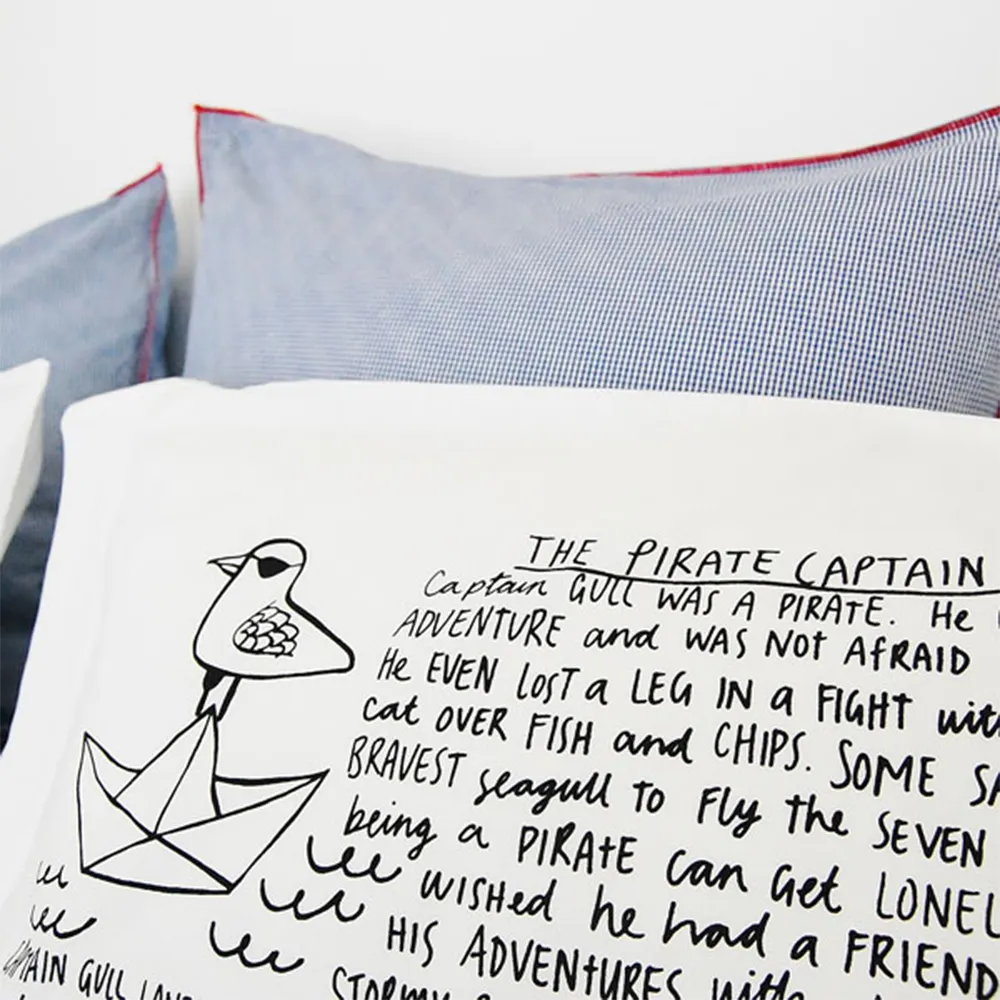 THE PIRATE CAPTAIN
Captain GULL WAS A PIRATE. He
ADVENTURE and WAS NOT AFRAID
He EVEN LOST a LEG IN a FIGHT with
cat OVER FISH and CHIPS. SOME
BRAVEST seagull TO FLY the SEVEN
being a PIRATE can Get
WISHED he had a FRIEND
HIS ADVENTURES with
STORMY
CAPTAIN GULL